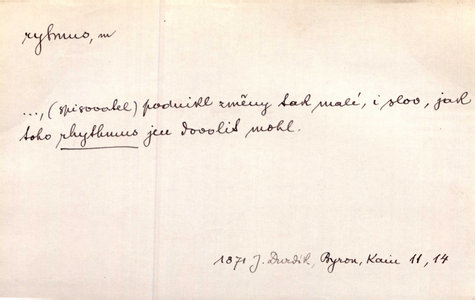 rytmus, m
..., (spisovatel) podnikl změny tak malé, i slov, jak
toho rhythmus jen dovolit mohl.
1871 J. Durdík, Byron, Kain 11, 14